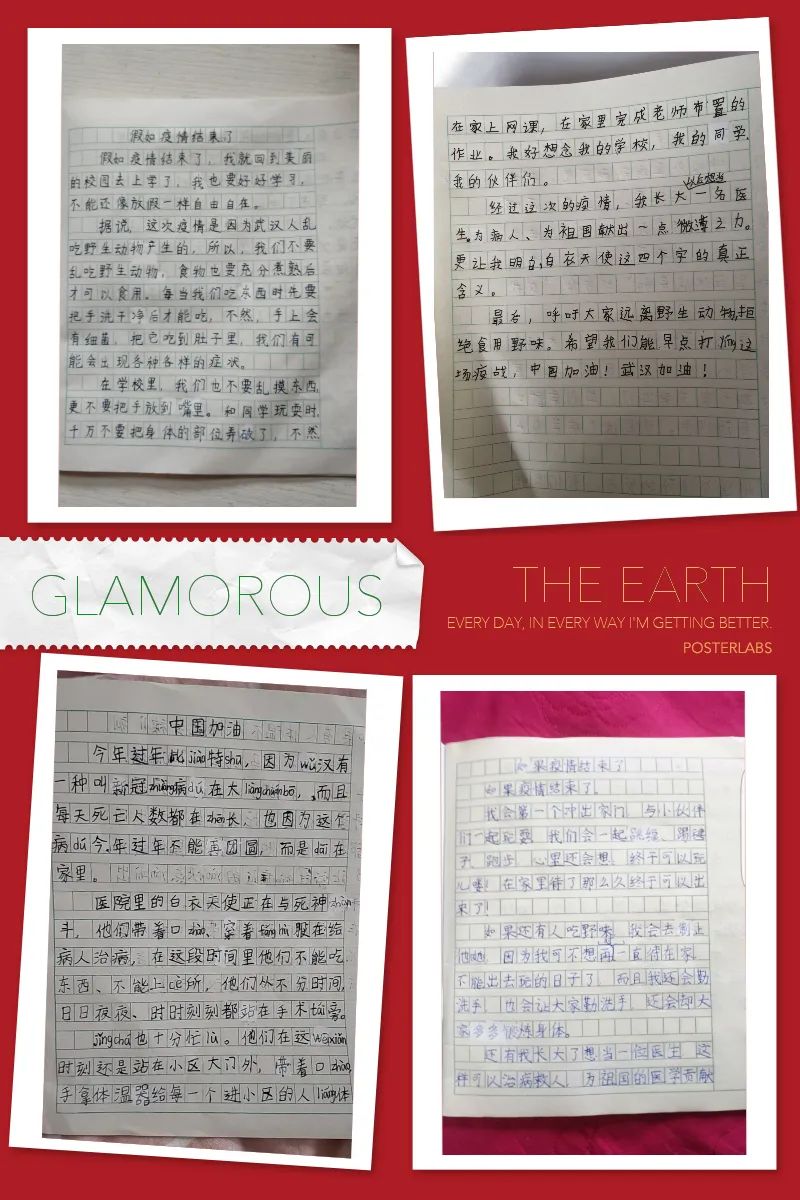 假如疫情结束了
假如疫情结束了，我就回到美丽
的校园去上学了，我也要好好学习，
不能还像放假一样自由自在。
据说，这次疫情是因为武汉人乱
吃野生动物产生的，所以，我们不要
乱吃野生动物，食物也要充分煮熟后
才可以食用。每当我们吃东西时先要
把手洗干净后才能吃，不然，手上会
有细菌，把它吃到肚子里，我们有可
能会出现各种各样的症状。
在学校里，我们也不要乱摸东西，
更不要把手放到嘴里。和同学玩耍时，
千万不要把身体的部位弄破了，不然
在家上网课，在家里完成老师布置的
作业。我好想念我的学校，我的同学，
我的伙伴们。
经过这次的疫情，我长大以后想当一名医
生，为病人、为祖国献出一点微薄之力。
要让我明白，白衣天使这四个字的真正
含义。
最后，呼吁大家远离野生动物，拒
绝食用野味。希望我们能早点打响这
场疫战，中国加油！武汉加油！
GLAMOROUS
THE EARTH
EVERY DAY, IN EVERY WAY I'M GETTING BETTER.
POSTERLABS
中国加油
今年过年比jiào特shū，因为wǔ汉有
一种叫新冠zhuàng病dú在大liàngchuánbō，而且
每天死亡人数都在zēng长，也因为这个
病dú今年过年不能再团圆，而是dāi在
家里。
医院里的白衣天使正在与死神
斗，他们带着口zhào、穿着fánghù服在给
病人治病，在这段时间里他们不能吃
东西、不能上cè所，他们从不分时间，
日日夜夜、时时刻刻都站在手术tái旁。
jǐngchá也十分忙lù。他们在这wēixiǎn
时刻还是站在小区大门外，带着口zhào，
手拿体温器给每一个进小区的人liáng体
如果疫情结束了
如果疫情结束了，
我会第一个冲出家门，与小伙伴
们一起玩耍，我们会一起跳绳、踢毽
子、跑步，心里还会想，终于可以玩
儿喽！在家里待了那么久终于可以出
来了！
如果还有人吃野味，我会去制止
他她，因为我可不想再一直待在家，
不能出去玩的日子了，而且我还会勤
洗手，也会让大家勤洗手，还会和大
家多多锻炼身体。
还有我长大了想当一位医生，这
样可以治病救人，为祖国的医学贡献